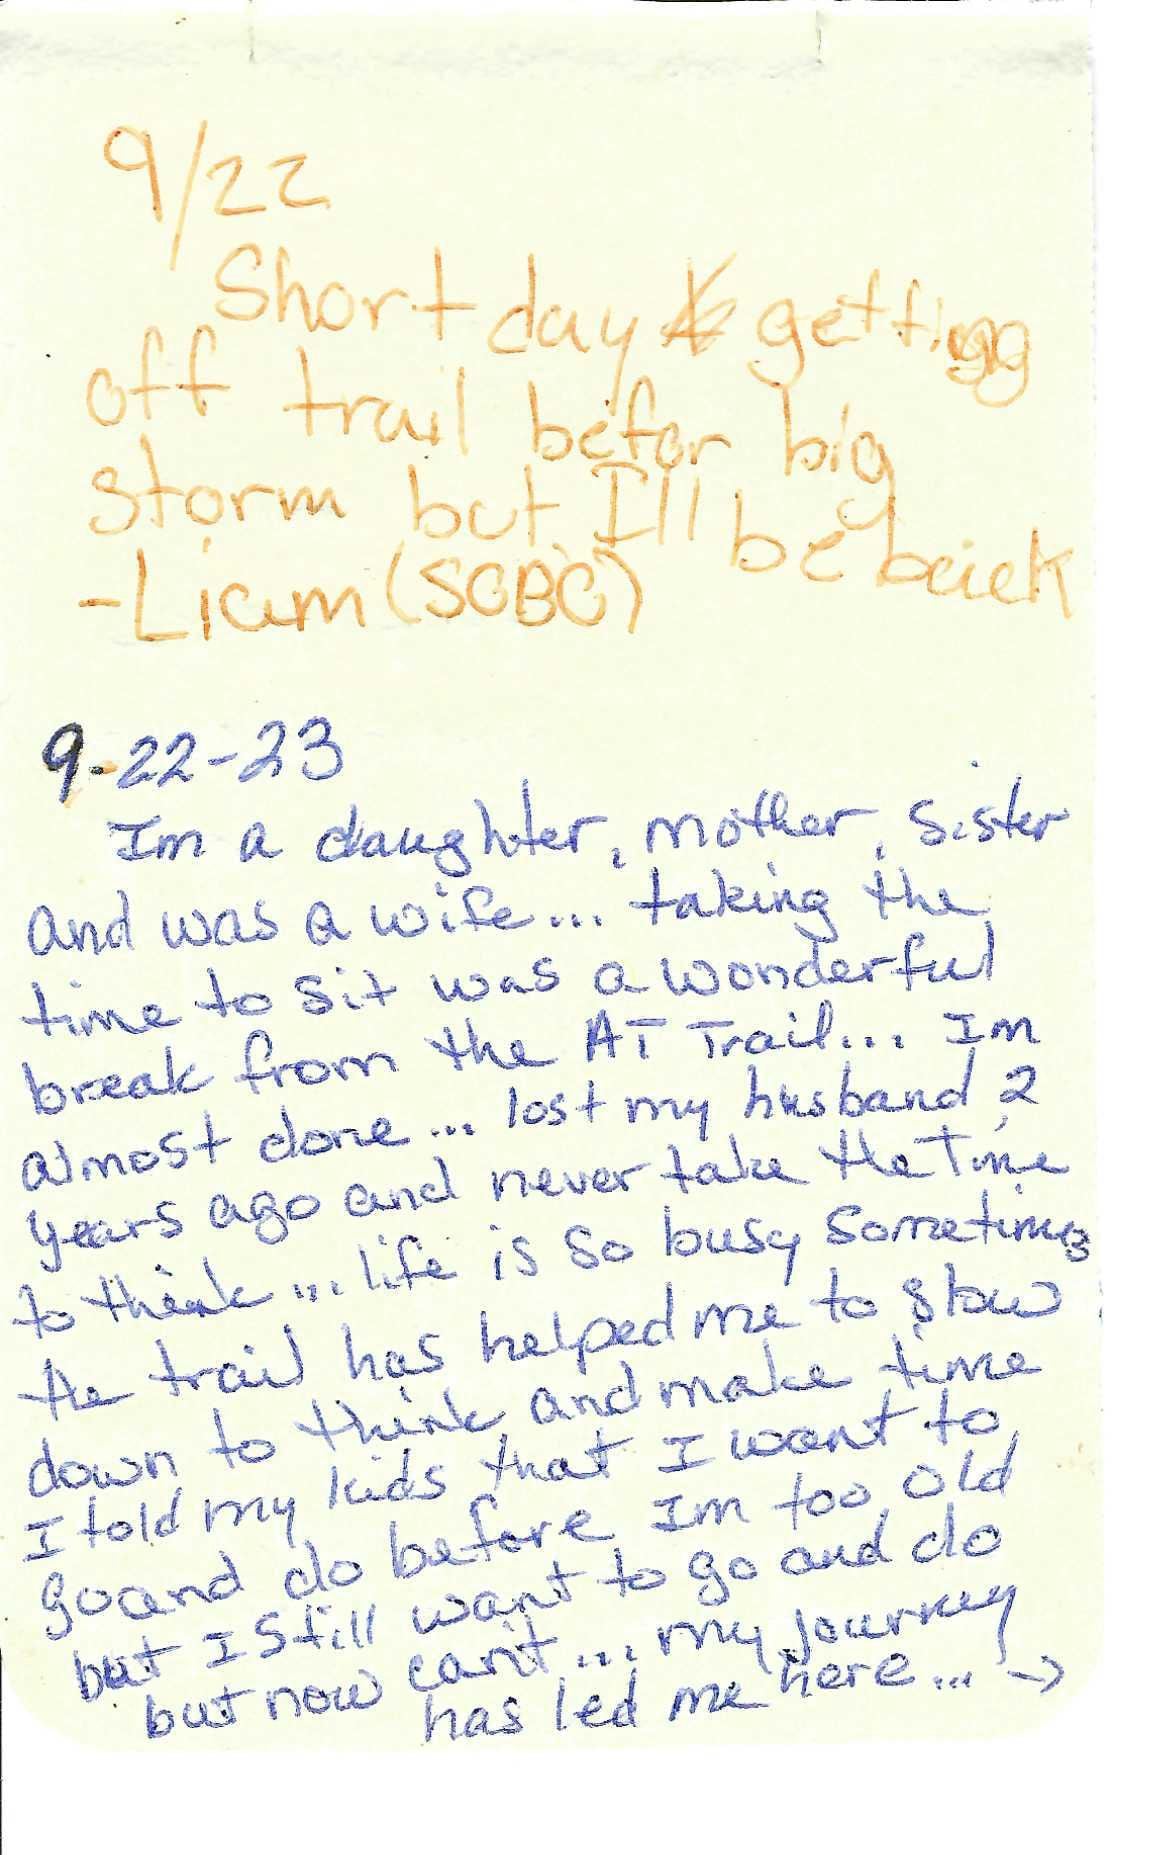 9/22
Short day getting
off trail befor big
storm but I'll be back
-Liam (SOBO)
9-22-23
Im a daughter, mother, sister
and was a wife... taking the
time to sit was a wonderful
break from the AT Trail... Im
almost done... lost my husband 2
years ago and never take the Time
to think... life is so busy sometimes
the trail has helped me to slow
down to think and make time
I told my kids that I want to
go and do before Im too old
but I still want to go and do
but now can't... my journey
has led me here... →